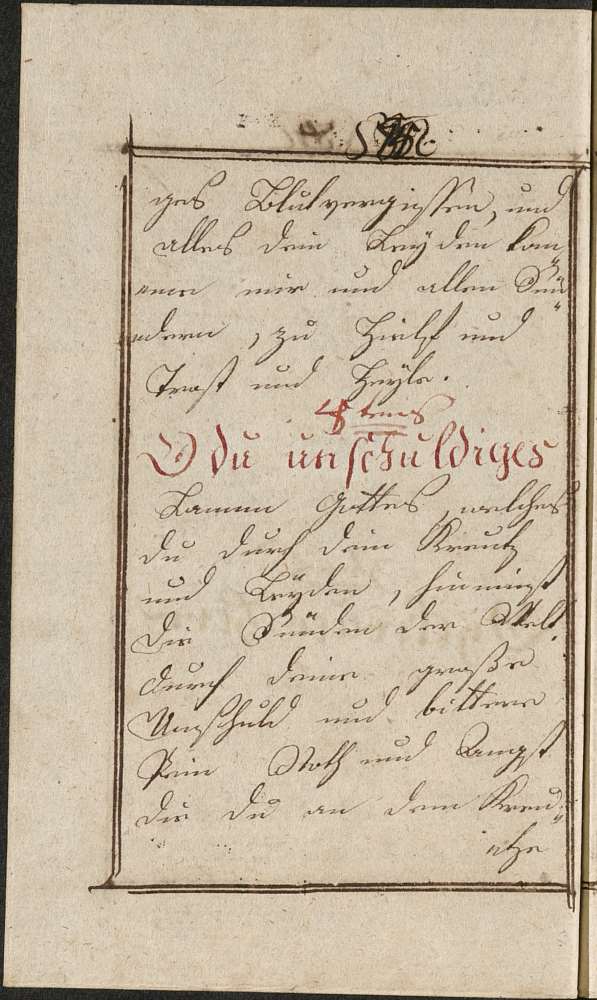 ges Blutvergiessen, und
alles dein Leyden kom
eme mir und allen Sün
ndern, zu Hielf und
Trost und Heyle.
4 tens
O du unschuldiges
Lamm Gottes, welches
du durch dein Kreutz
und Leyden, hinnimst
die Sünden der Welt
durch deine große
Unschuld und bittere
Pein Noth und Angst
die du an dem Kreu„
tze